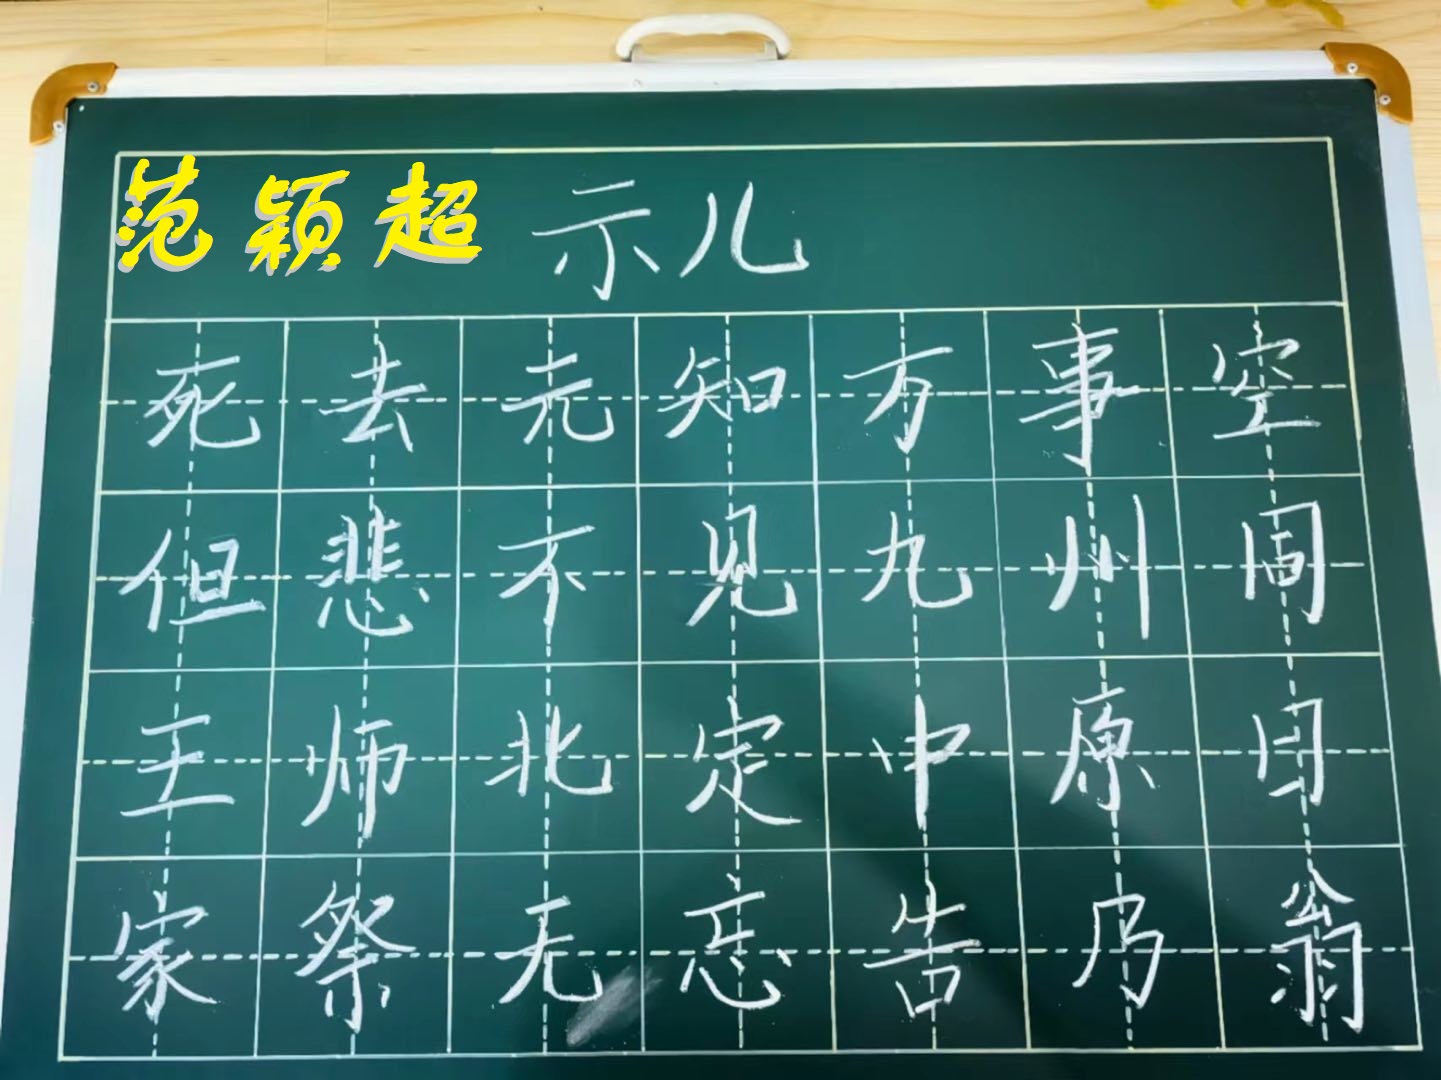 范颖超 示儿
死去元知万事空
但悲不见九州同
王师北定中原日
家祭无忘告乃翁